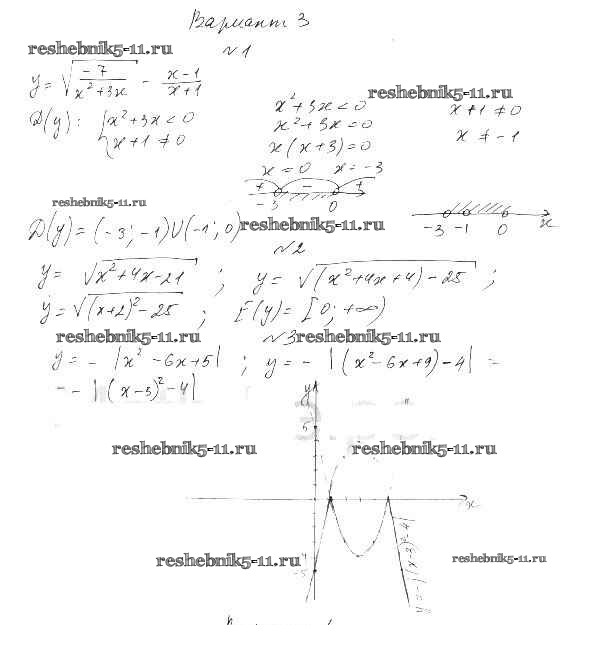 Вариант 3
reshebnik5-11.ru
№1
y = √(-7/(x²+3x)) - (x-1)/(x+1)
reshebnik5-11.ru
D(y): { x²+3x<0
x+1≠0
x²+3x<0
x²+3x=0
x(x+3)=0
x=0 x=-3
x+1≠0
x≠-1
+ - +
-3 0
reshebnik5-11.ru
-3 -1 0 x
D(y)=(-3;-1)U(-1;0)
reshebnik5-11.ru
№2
y = √(x²+4x-21) ; y = √((x²+4x+4)-25) ;
y = √((x+2)²-25) ; E(y)=[0;+∞)
reshebnik5-11.ru
№3
reshebnik5-11.ru
y = -|x²-6x+5| ; y = -|(x²-6x+9)-4| =
= -|(x-3)²-4|
y
5
reshebnik5-11.ru
reshebnik5-11.ru
x
-4
-5
y=-|(x-3)²-4|
reshebnik5-11.ru
reshebnik5-11.ru